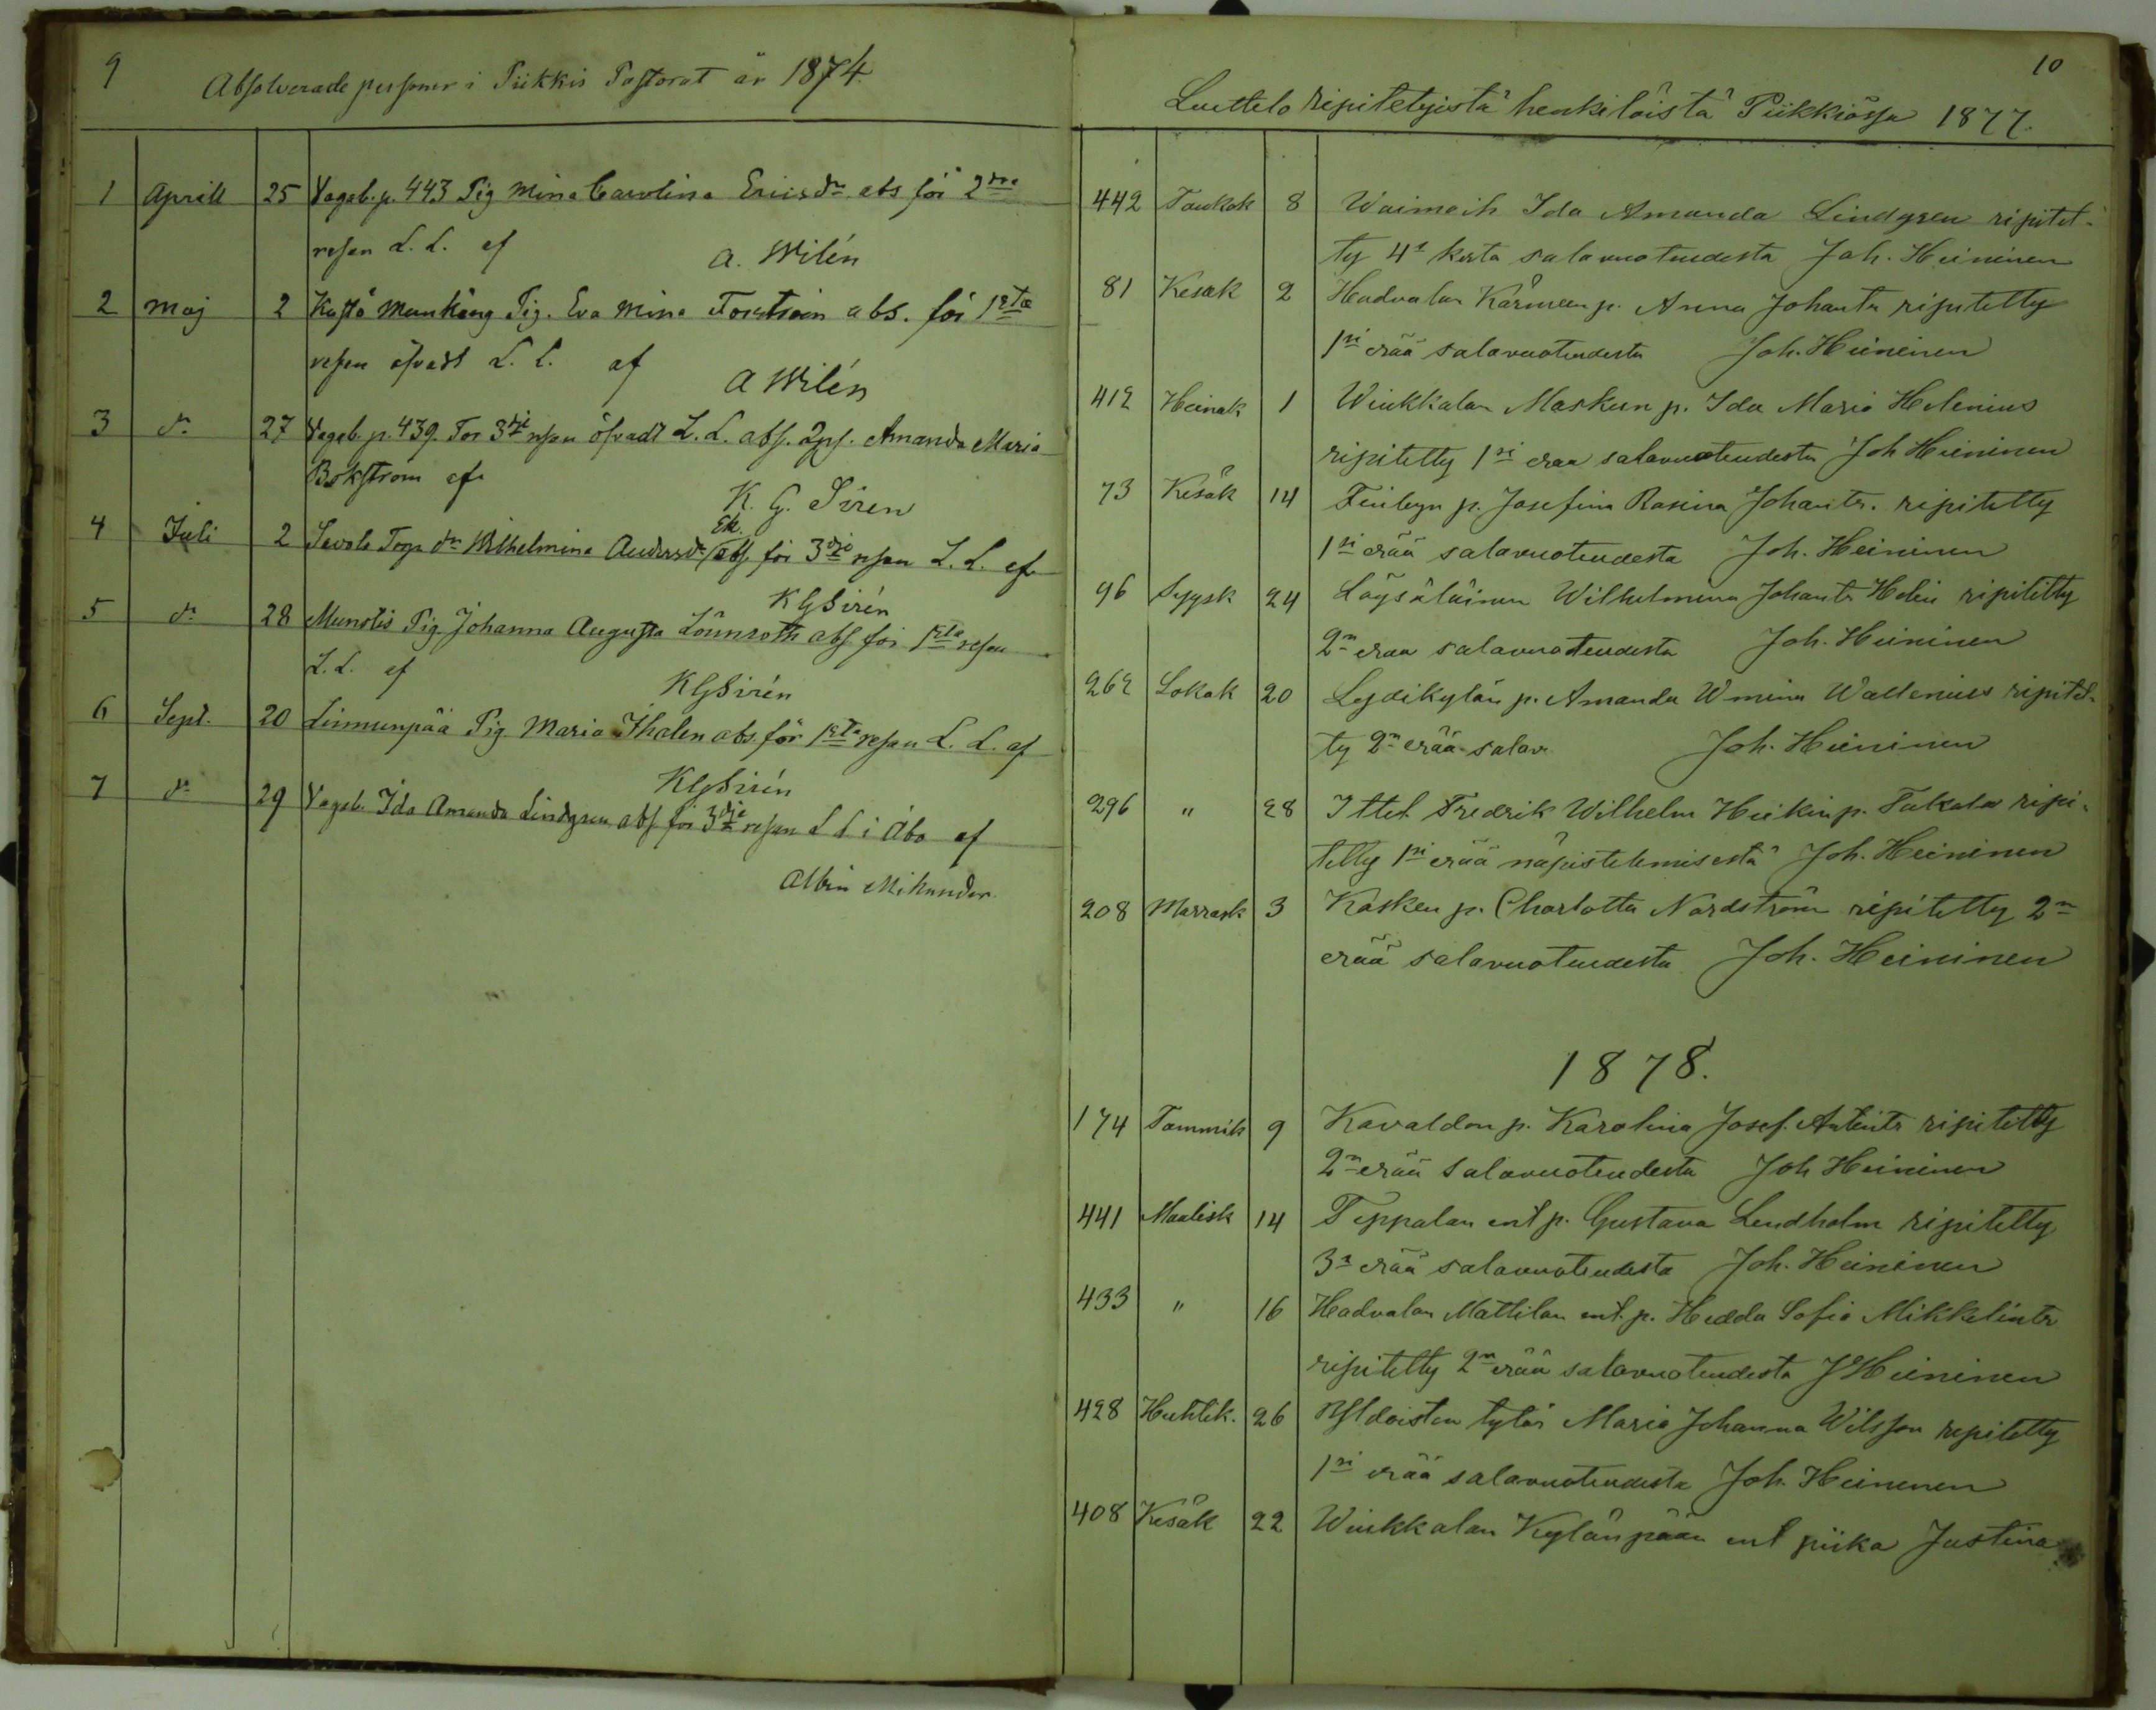 9
Absolverade personer i Piikkis Pastorat år 1874.
1 Aprill 25 Vagab. p. 443 Pig Mina Carolina Ericsdr abs för 2dra
resan L. L. af A. Wilén
2 Maj 2 Hästö Munkäng Pig. Eva Mina Forstroin abs. för 1sta
resan öfvadt L. L. af A Wilén
3 dn 27 Vagab. p. 439. For 3dje resan öfvadt L. L. abs. Qps. Amanda Maria
Bokstrom af K. G. Siren
4 Juli 2 Torp dr Wilhelmina Andersdr Ek. abs. för 3dje resan L. L. af
KGSirén
5 dn 28 Munolis Pig. Johanna Augusta Lönnroth abs för 1sta resan
L. L. af KGSirén
6 Sept. 20 Linnunpää Pig Maria Thalen abs. för 1sta resan L. L. af
KGSirén
7 dn 29 Vagab. Ida Amanda Lindgren abs för 3dje resan L L i Åbo af
Albin Mikander.
10
Luettelo ripitetyistä henkilöistä Piikkiössä 1877.
442 Toukok 8 Waimoih Ida Amanda Lindgren ripitet-
ty 4s kerta salavuoteudesta Joh. Heininen
81 Kesäk 2 Hadvalan Kärmeen p. Anna Johantr ripitetty
1si erää salavuoteudesta Joh. Heininen
412 Heinäk 1 Wiukkalan Maskun p. Ida Maria Helenius
ripitetty 1si erää salavuoteudesta Joh Heininen
73 Kesäk 14 p. Josefina Rosina Johantr. ripitetty
1si erää salavuoteudesta Joh. Heininen
96 Syysk 24 Löysäläinen Wilhelmina Johantr Helin ripitetty
2n eraa salavuoteudesta Joh. Heininen
262 Lokak 20 p. Amanda Wmina Wallenius ripitet-
ty 2n erää salav. Joh. Heininen
296 " 28 Ittel Fredrik Wilhelm Heikinp. Tukala ripi-
tetty 1si erää näpistelemisestä Joh. Heininen
208 Marrask 3 Kosken p. Charlotta Nordström ripitetty 2n
erää salavuoteudesta Joh. Heininen
1878.
174 Tammik 9 Kavaldon p. Karolina Josef. Antintr ripitetty
2n erää salavuoteudesta Joh Heininen
441 Maalisk 14 Teppalan ent p. Gustava Lendholm ripitetty
3n erää salavuoteudesta Joh. Heininen
433 " 16 Hadvalan Mattilan ent. p. Hedda Sofia Mikkelintr
ripitetty 2n erää salavuoteudesta JHeininen
428 Huhtik. 26 Yldoisten tytär Maria Johanna Wilsson ripitetty
1si erää salavuoteudesta Joh. Heininen
408 Kesäk 22 Wiukkalan Kylänpään ent piika Justina